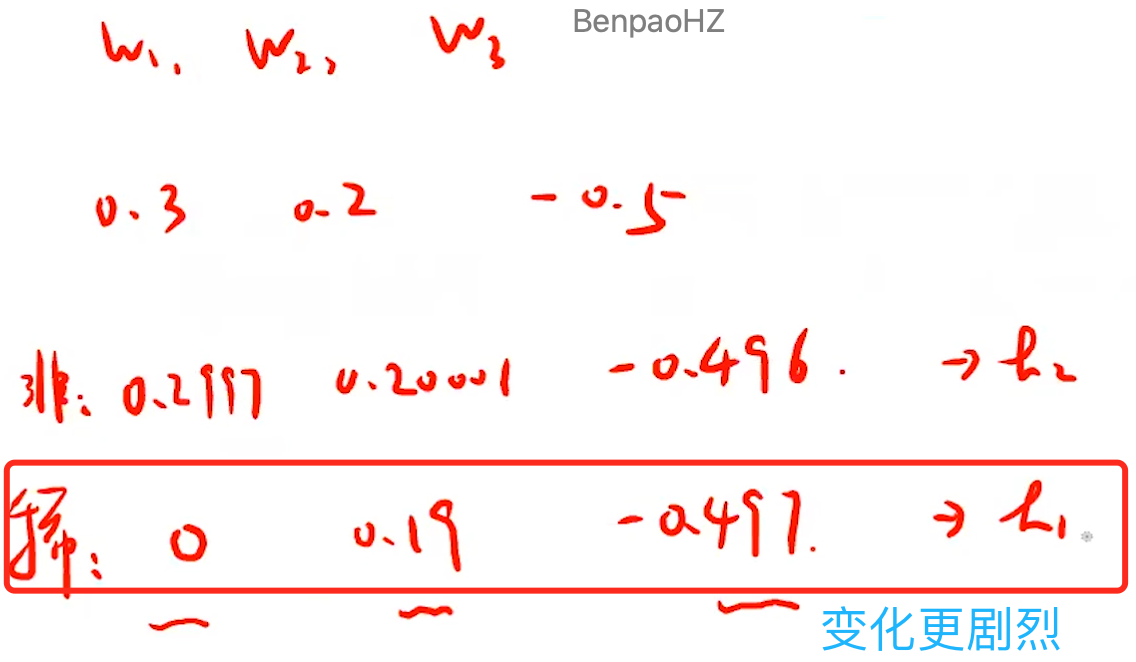 BenpaoHZ
w₁, w₂, w₃
0.3 0.2 -0.5
非: 0.2997 0.20001 -0.496. → h₂
稀: 0 0.19 -0.497. → h₁
变化更剧烈